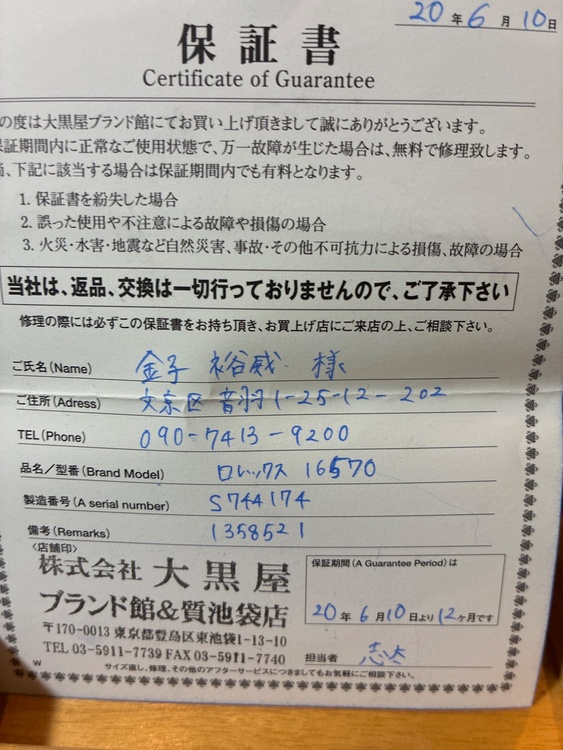 20年6月10日
保証書
Certificate of Guarantee
の度は大黒屋ブランド館にてお買い上げ頂きまして誠にありがとうございます。
保証期間内に正常なご使用状態で、万一故障が生じた場合は、無料で修理致します。
尚、下記に該当する場合は保証期間内でも有料となります。
1. 保証書を紛失した場合
2. 誤った使用や不注意による故障や損傷の場合
3. 火災・水害・地震など自然災害、事故・その他不可抗力による損傷、故障の場合
当社は、返品、交換は一切行っておりませんので、ご了承下さい
修理の際には必ずこの保証書をお持ち頂き、お買上げ店にご来店の上、ご相談下さい。
ご氏名(Name) 金子 裕威 様
ご住所(Adress) 文京区音羽1-25-12-202
TEL(Phone) 090-7413-9200
品名/型番(Brand Model) ロレックス 16570
製造番号(A serial number) S744174
備考(Remarks) 1358521
〈店舗印〉
株式会社 大黒屋
ブランド館&質池袋店
〒170-0013 東京都豊島区東池袋1-13-10
TEL 03-5911-7739 FAX 03-5911-7740
保証期間(A Guarantee Period)は
20年6月10日より12ヶ月です
担当者
サイズ直し、修理、その他のアフターサービスにつきましてもお気軽にご相談下さい。
W